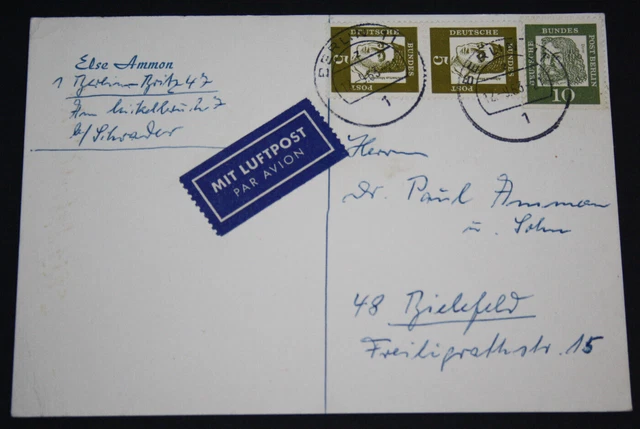 Else Ammon
1 Berlin-Britz 47
Am
b/ Schrader
MIT LUFTPOST
PAR AVION
DEUTSCHE
BUNDES
POST
5
DEUTSCHE
BUNDES
POST
5
DEUTSCHE
BUNDES
POST BERLIN
10
BERLIN
1
BERLIN
1
Herrn
Dr. Paul Ammon
u. Sohn
48 Bielefeld
Freiligrathstr. 15